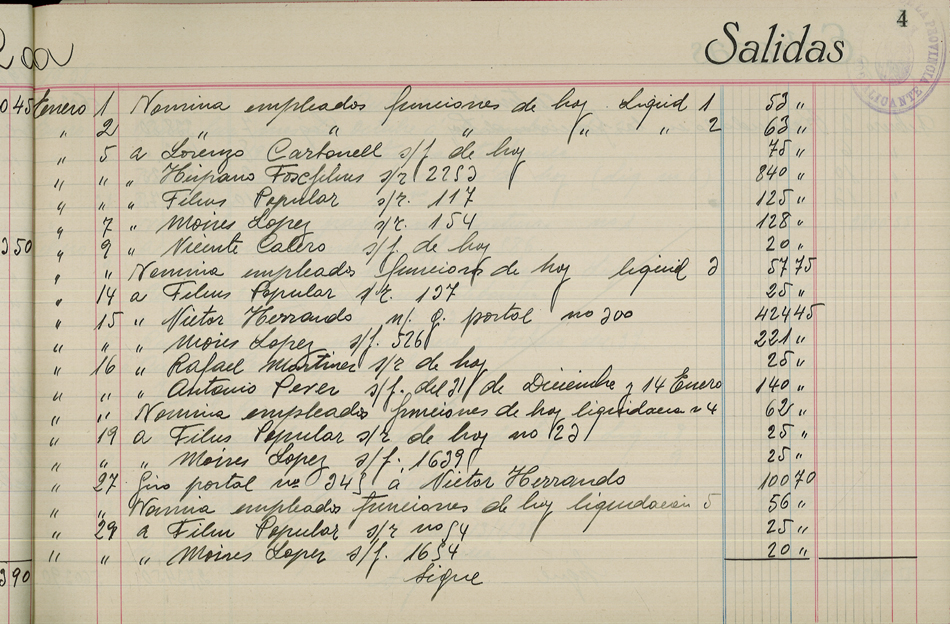 4
Salidas
045 Enero 1 Nomina empleados funciones de hoy Liquid 1 53 "
" 2 " " " " " 2 63 "
" 5 a Lorenzo Carbonell s/f de hoy 75 "
" " " Hispano Foxfilms s/r 2253 840 "
" " " Films Popular s/r. 117 125 "
" 7 " Moises Lopez s/r. 154 128 "
350 " 9 " Vicente Calero s/f. de hoy 20 "
" " Nomina empleados funciones de hoy liquid 3 57 75
" 14 a Films Popular s/r. 137 25 "
" 15 " Victor Herrando n/. g. postal no 300 424 45
" " " Moises Lopez s/f. 526 221 "
" 16 " Rafael Martinez s/r de hoy 25 "
" " " Antonio Pever s/f. del 31 de Diciembre y 14 Enero 140 "
" " Nomina empleados funciones de hoy liquidacion n 4 62 "
" 19 a Films Popular s/r de hoy no 123 25 "
" " " Moises Lopez s/f. 1639 25 "
" 27 Giro postal no 345 a Victor Herrando 100 70
" " Nomina empleados funciones de hoy liquidacion 5 56 "
" 29 a Film Popular s/r no 54 25 "
" " " Moises Lopez s/f. 1654 20 "
390 Sigue